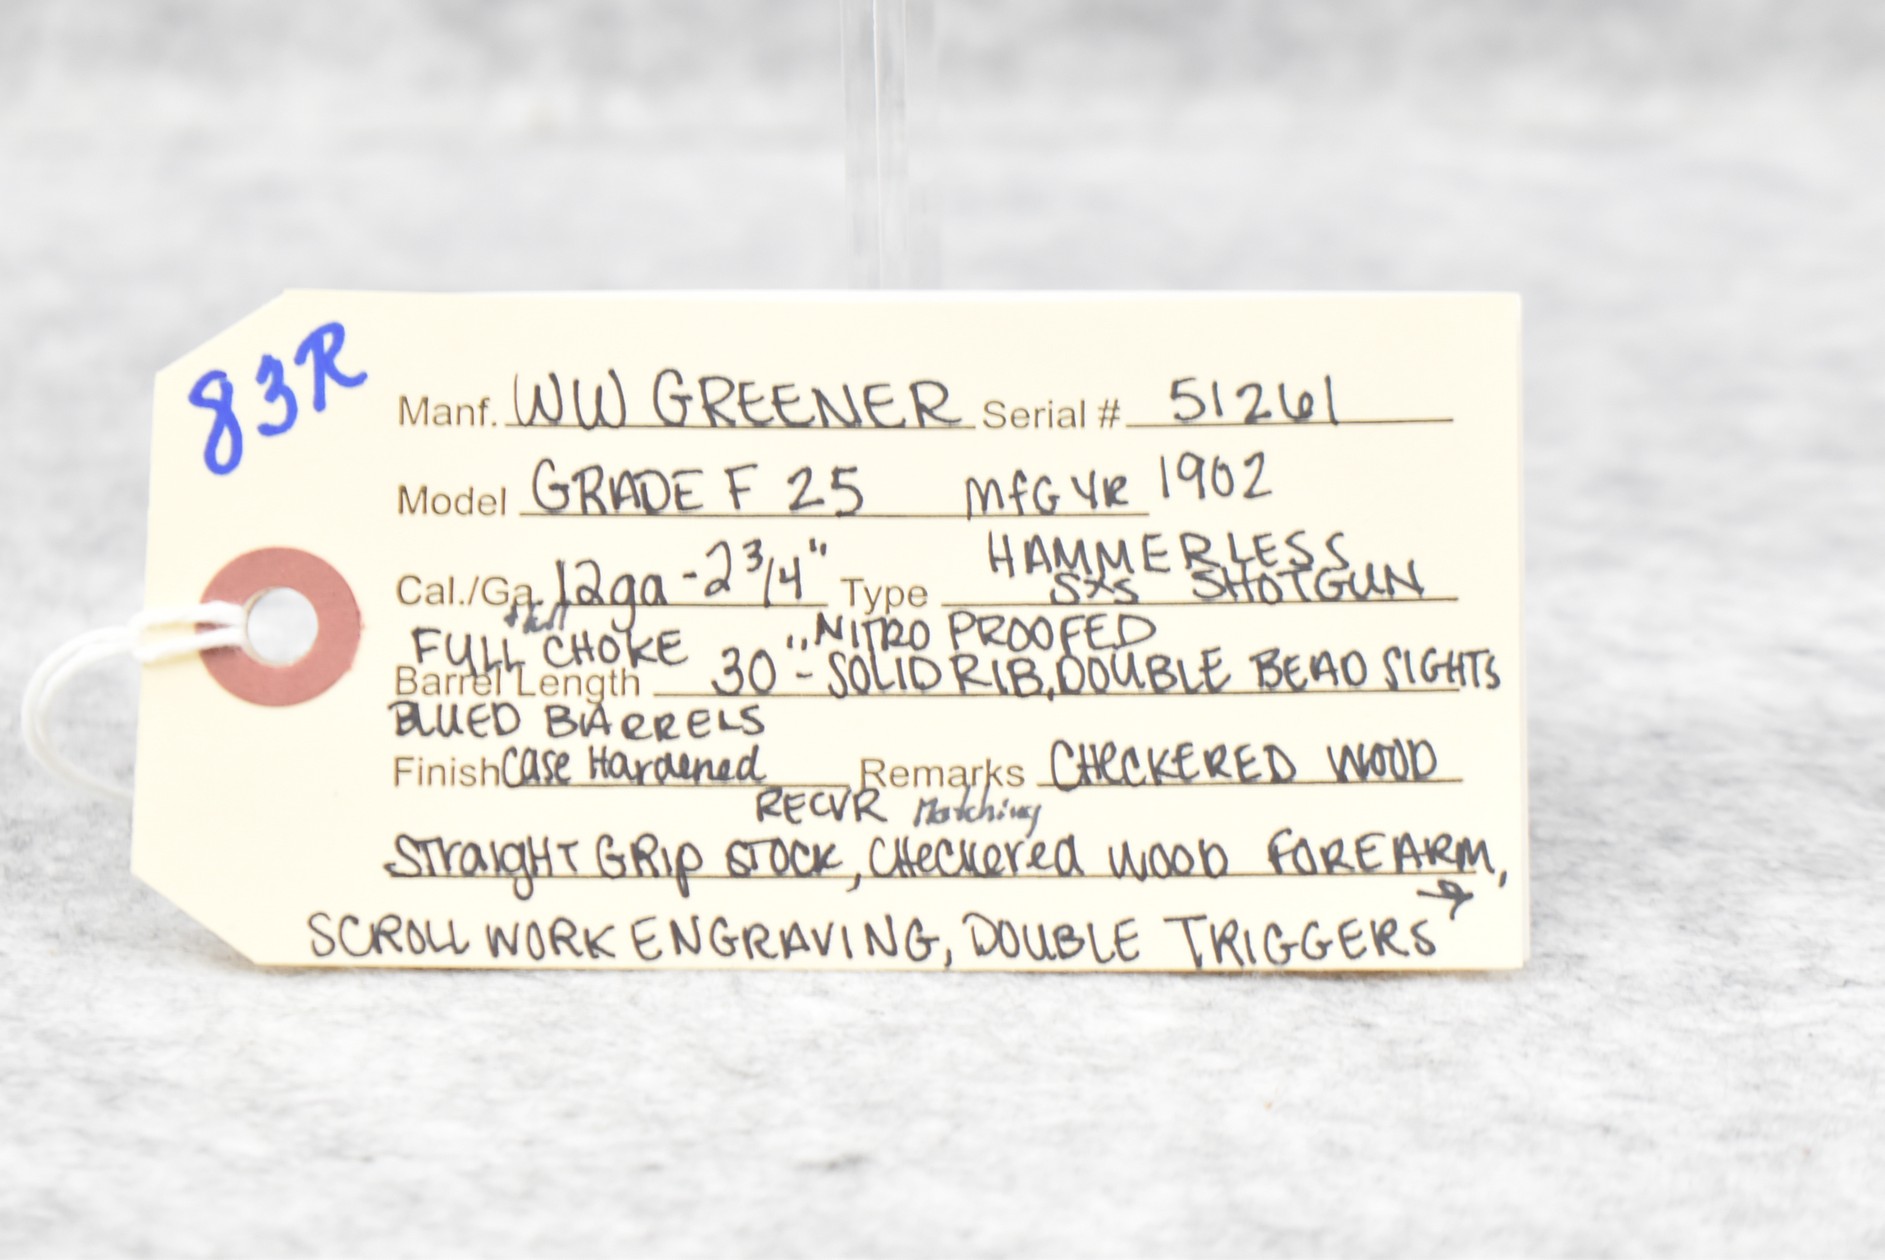 83R
Manf. WW GREENER Serial # 51261
Model GRADE F 25 MfG YR 1902
HAMMERLESS
Cal./Ga. 12ga - 2 3/4" Type SXS SHOTGUN
FULL CHOKE NITRO PROOFED
Barrel Length 30" - SOLID RIB, DOUBLE BEAD SIGHTS
BLUED BARRELS
Finish Case Hardened Remarks CHECKERED WOOD
RECVR Matching
STraigHT GRip STOCK, CHeckered WOOD FOREARM,
SCROLL WORK ENGRAVING, DOUBLE TRIGGERS →